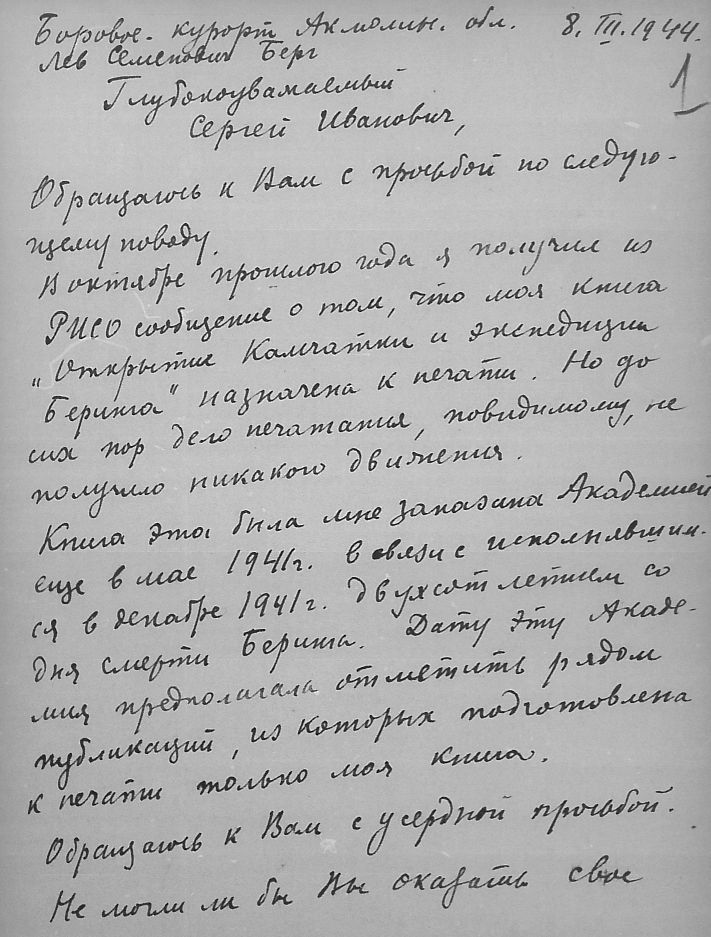 Боровое-курорт Акмолин. обл. 8.III.1944.
Лев Семенович Берг
1
Глубокоуважаемый
Сергей Иванович,
Обращаюсь к Вам с просьбой по следую-
щему поводу.
В октябре прошлого года я получил из
РИСО сообщение о том, что моя книга
„Открытие Камчатки и экспедиции
Беринга" назначена к печати. Но до
сих пор дело печатания, повидимому, не
получило никакого движения.
Книга эта была мне заказана Академией
еще в мае 1941 г. в связи с исполнявшим-
ся в декабре 1941 г. двухсотлетием со
дня смерти Беринга. Дату эту Акаде-
мия предполагала отметить рядом
публикаций, из которых подготовлена
к печати только моя книга.
Обращаюсь к Вам с усердной просьбой.
Не могли ли бы Вы оказать свое